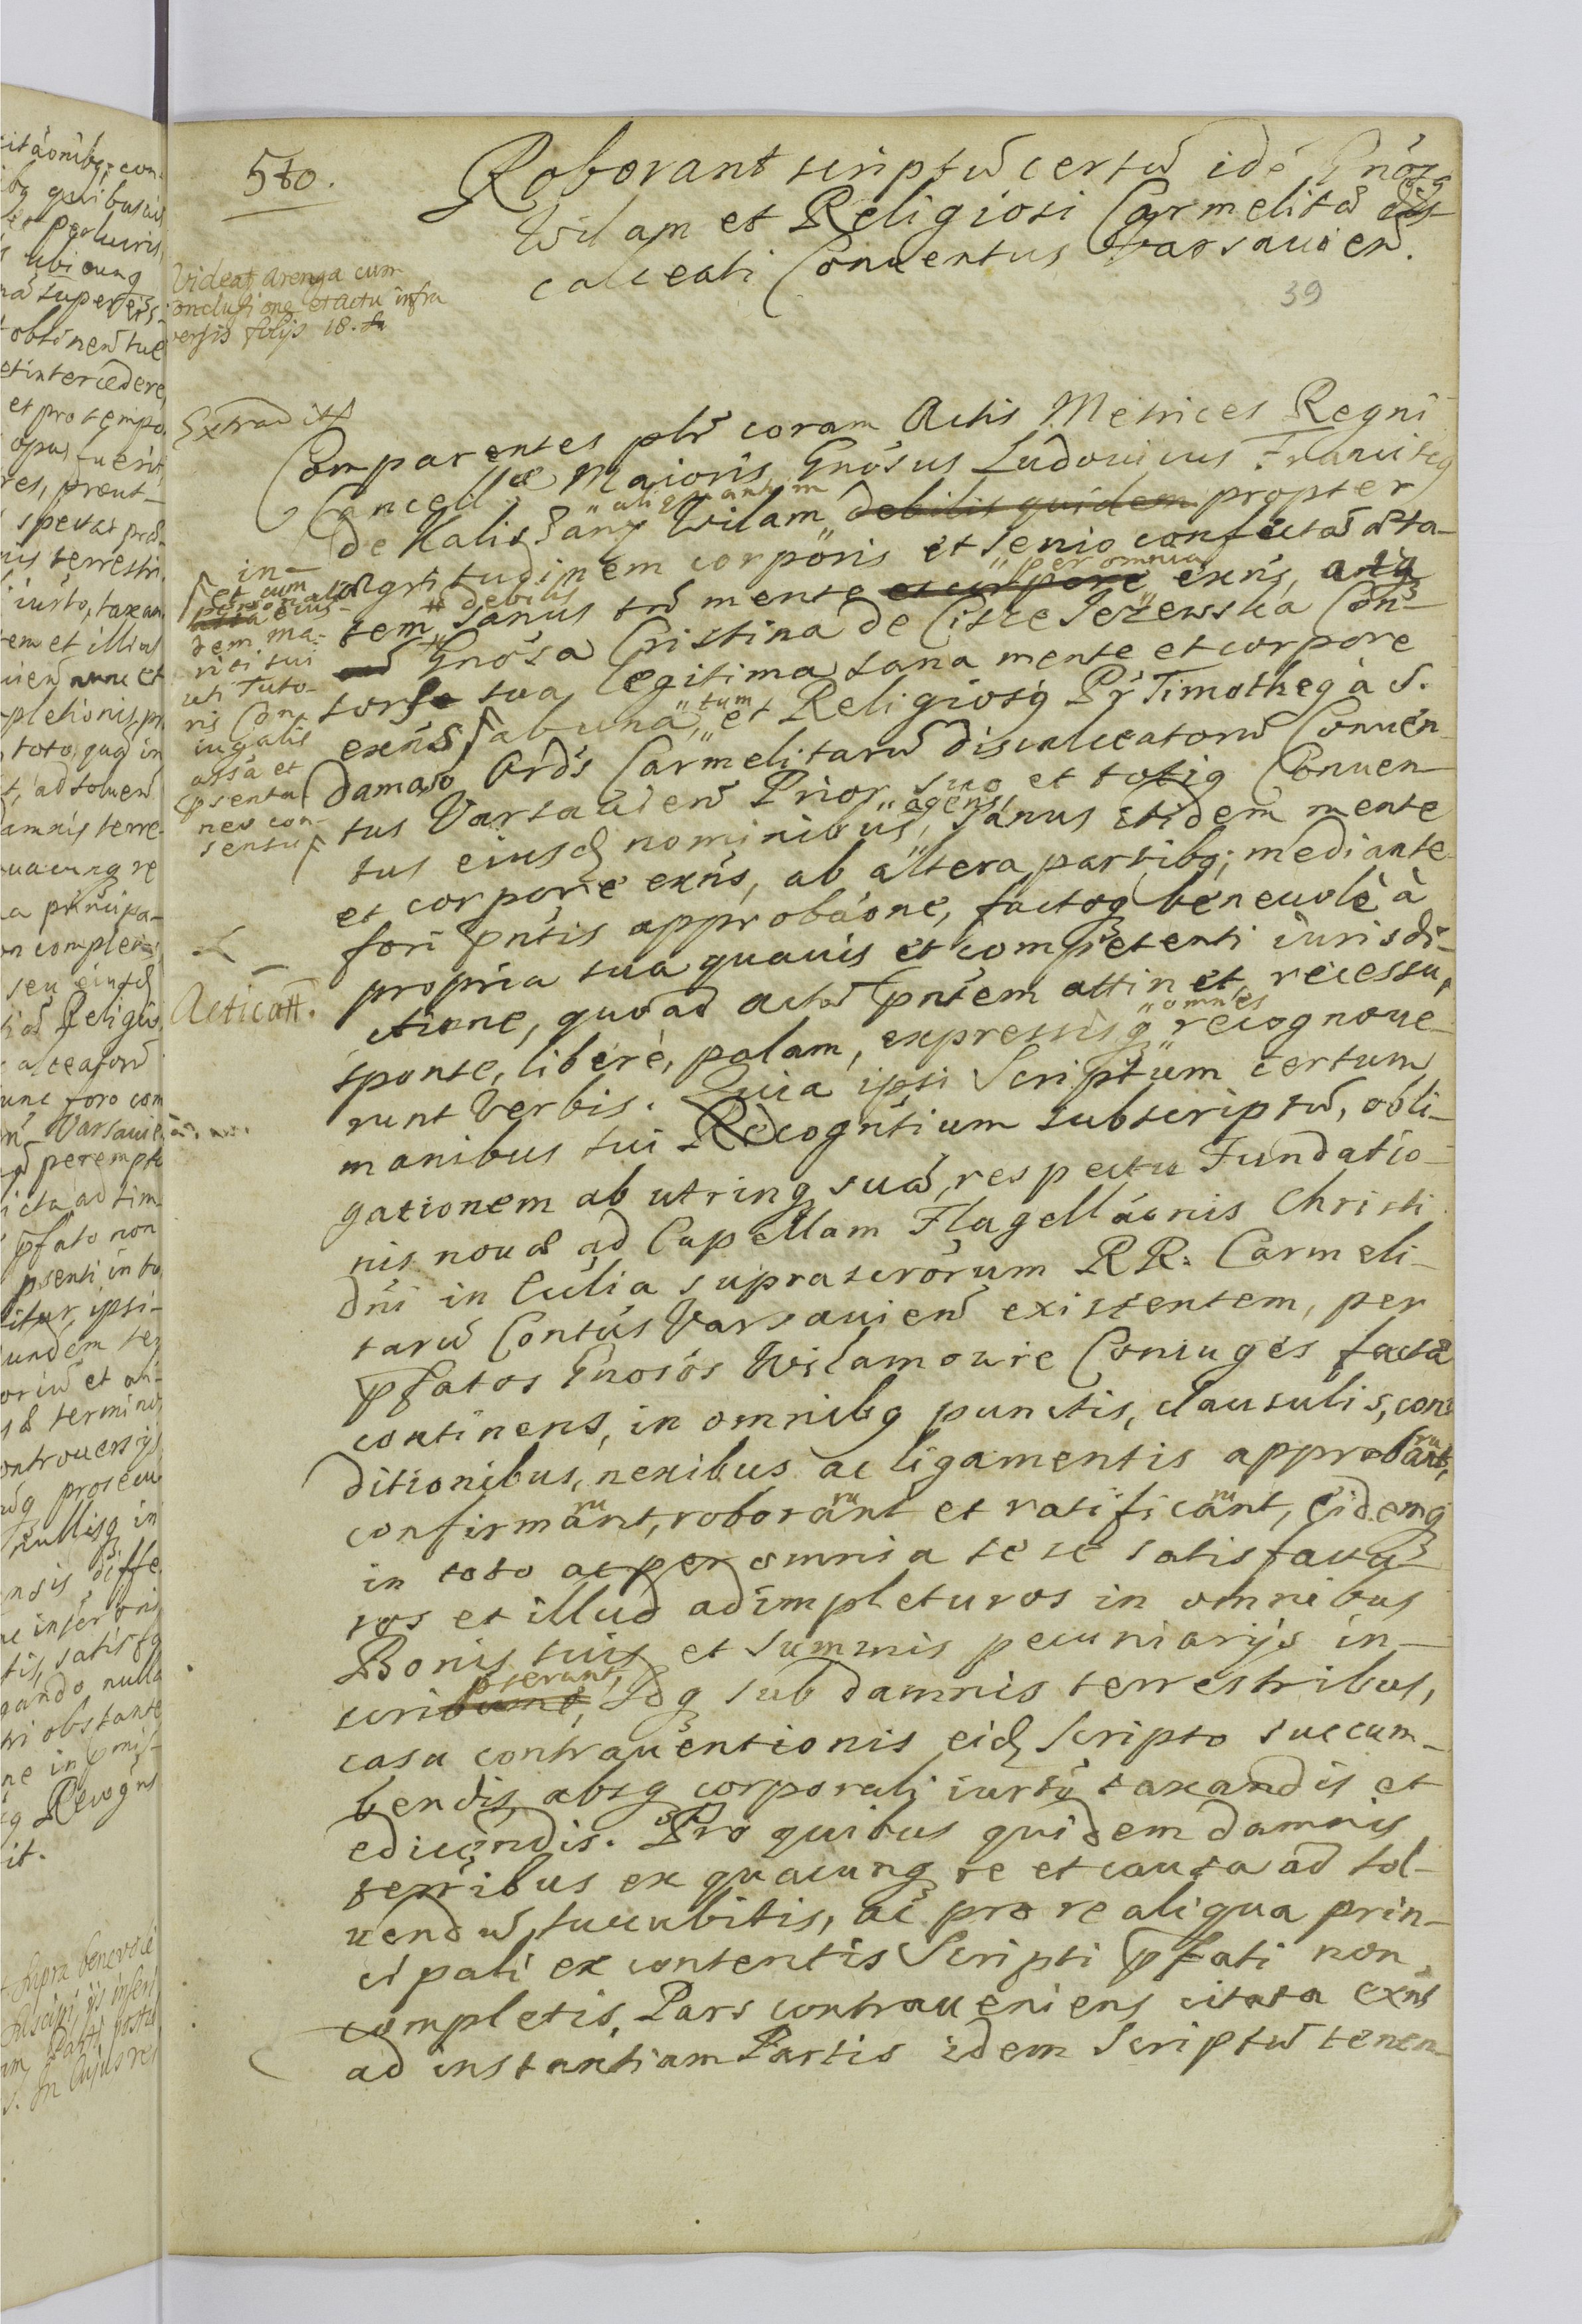 5to.
Roborant scriptũ certũ idē Gnõsq
Wilam et Religiosi Carmelitæ dis
calceati Conuentus Varsauien.
39
Videat Arenga cum
conclusione et actu infra
versis folijs 18.
Extradit
Comparentes plr̃ coram Actis Metrices Regni
Cancellæ Maioris Gnõsus Ludouicus Franciscq
de Kalisz Sany Wilam "aliquantum debilis quidem propter
in-
ægritudinem corporis et senio confectã æta-
tem # debilis sanus tñ mente et corpore "per omnia exñs, atq
Gnõsa Cristina de Cisze Jeżewska Con-
sorte sua legitima sana mente et corpore
exñs ab una, "tum et Religiosq Pr̃ Timotheq à S.
Damaso Ordis Carmelitarũ discalceatorũ Conuen-
tus Varsauien Prior suo et totiq Conuen-
tus eiusd nominibus, "agens sanus itidem mente
et corpore exñs, ab altera partibq; mediante
fori pñtis approbãone, factoq beneuolè à
propria sua quauis et competenti iurisdi-
ctione, quoad actũ pñtem attinet, recessu,
sponte, liberè, palam, expressisq "omnes recognoue-
runt verbis. Quia ipsi Scriptum certum,
manibus sui Recogñtium subscriptũ, obli-
gationem ab utrinq suã, respectu Fundatio-
nis nouæ ad Capellam Flagellãonis Christi
Dñi in Ecclia suprascrõrum RR: Carmeli-
tarũ Contũs Varsauien existentem, per
pfatos Gnosõs Wilamowie Coniuges factã
continens, in omnibq punctis, clausulis, con-
ditionibus, nexibus ac ligamentis approbarunt,
confirmarunt, roborarunt et ratificarunt, eidemq
in toto ac per omnia se se satisfactu-
ros et illud adimpleturos in omnibus
Bonis suis et Summis pecuniarijs in-
scribunt, pserunt, Idq sub damnis terrestribus,
casu contrauentionis eid Scripto succum-
bendis, absq corporali iurtõ taxandis et
edicendis. Pro quibus quidem damnis
terribus ex quacunq re et causa ad sol-
uendũ, succubitis, ac pro re aliqua prin-
cipali ex contentis Scripti pfati non
completis, Pars contraueniens citata exñs
ad instantiam Partis idem Scriptũ tenen-
et cum
personali
eius-
dem ma-
riti sui
uti Tuto-
ris Con-
iugalis
assã et
psentia
nec con-
sensu
Acticatt.